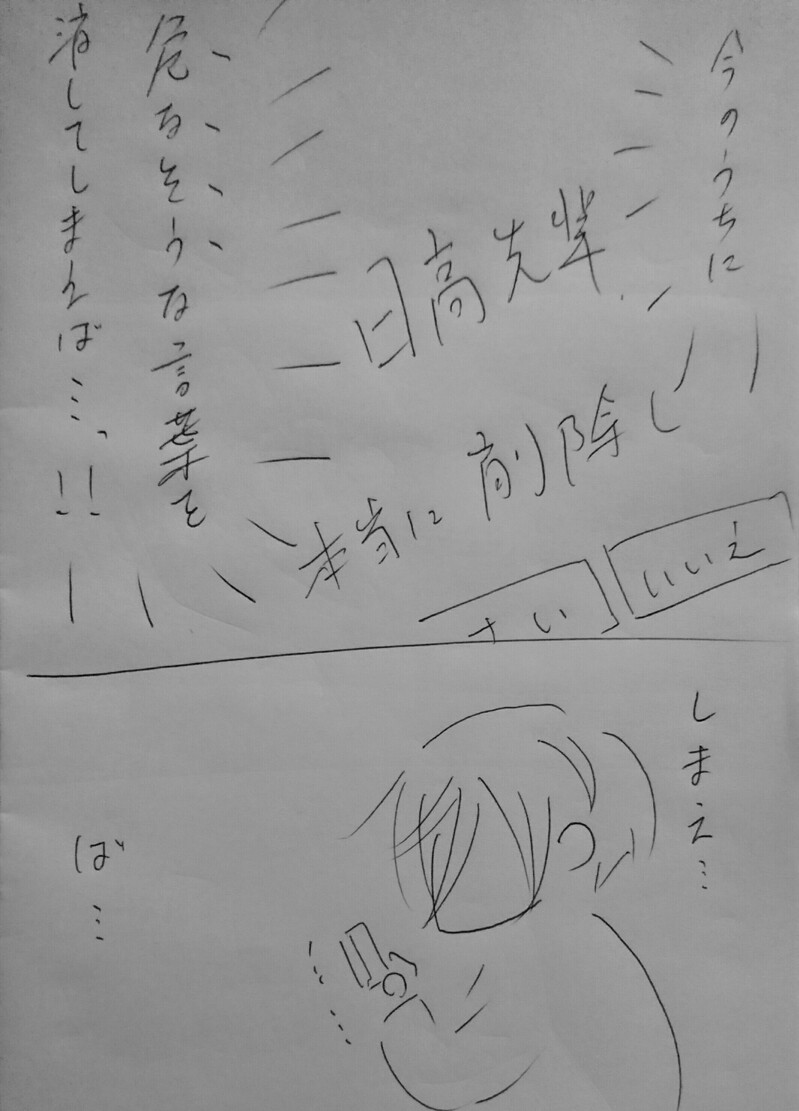 今のうちに
日高先輩
本当に削除し
はい
いいえ
危なそうな言葉を
消してしまえば…、!!
しまえ…
ば…